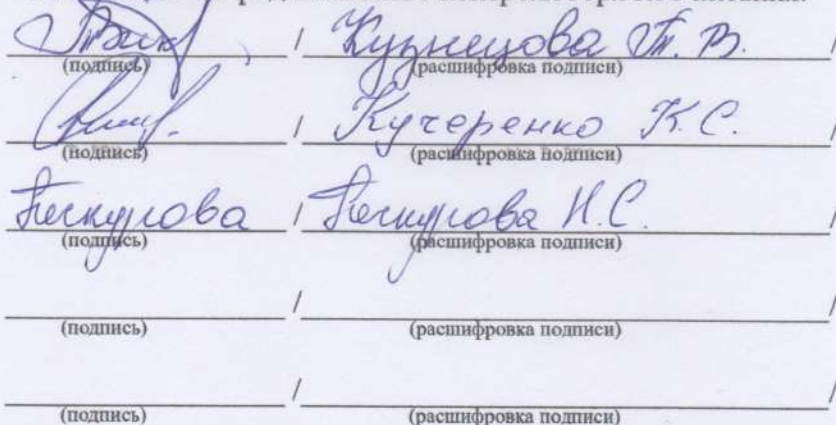 / Кузнецова Т. В. /
(подпись) (расшифровка подписи)
/ Кучеренко К. С. /
(подпись) (расшифровка подписи)
/ Н. С. /
(подпись) (расшифровка подписи)
/ /
(подпись) (расшифровка подписи)
/ /
(подпись) (расшифровка подписи)